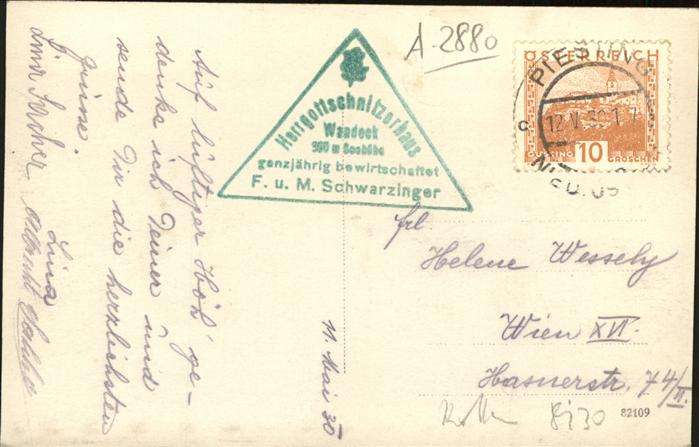 A-2880
ÖSTERREICH
GÜSSING
10
GROSCHEN
PIESTING
c 12.V.30
Herrgottschnitzerhaus
Wandeck
ganzjährig bewirtschaftet
F. u. M. Schwarzinger
Auf luftiger Höh' ge-
denke ich Deiner und
sende Dir die herzlichsten
Grüsse
Lina
11. Mai 30
frl
Helene Wessely
Wien XVI.
Hasnerstr. 74/II.
82109